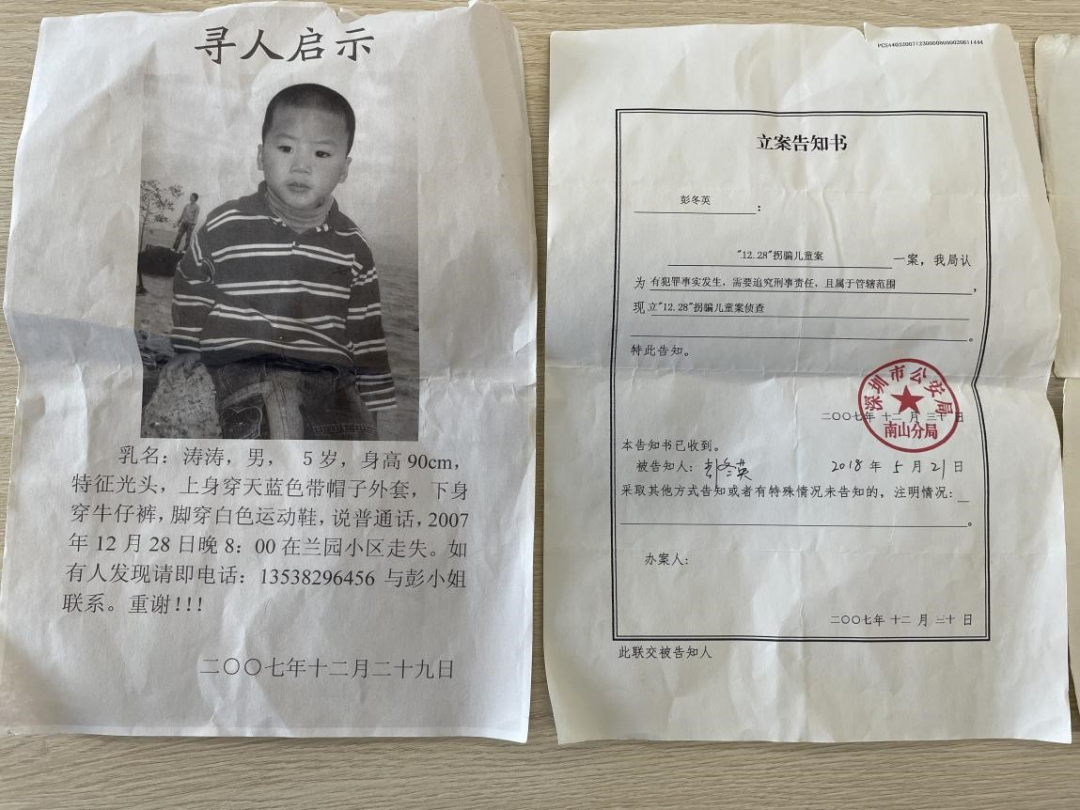 寻人启示
乳名：涛涛，男， 5 岁，身高 90cm，
特征光头，上身穿天蓝色带帽子外套，下身
穿牛仔裤，脚穿白色运动鞋，说普通话，2007
年 12 月 28 日晚 8：00 在兰园小区走失。如
有人发现请即电话：13538296456 与彭小姐
联系。重谢!!!
二〇〇七年十二月二十九日
立案告知书
彭冬英 ：
"12.28"拐骗儿童案 一案，我局认
为 有犯罪事实发生，需要追究刑事责任，且属于管辖范围 ，
现 立"12.28"拐骗儿童案侦查
。
特此告知。
深圳市公安局
南山分局
二〇〇七年 十二 月 三十 日
本告知书已收到。
被告知人：彭冬英 2018 年 5 月 21 日
采取其他方式告知或者有特殊情况未告知的，注明情况：
。
办案人：
二〇〇七年 十二 月 三十 日
此联交被告知人